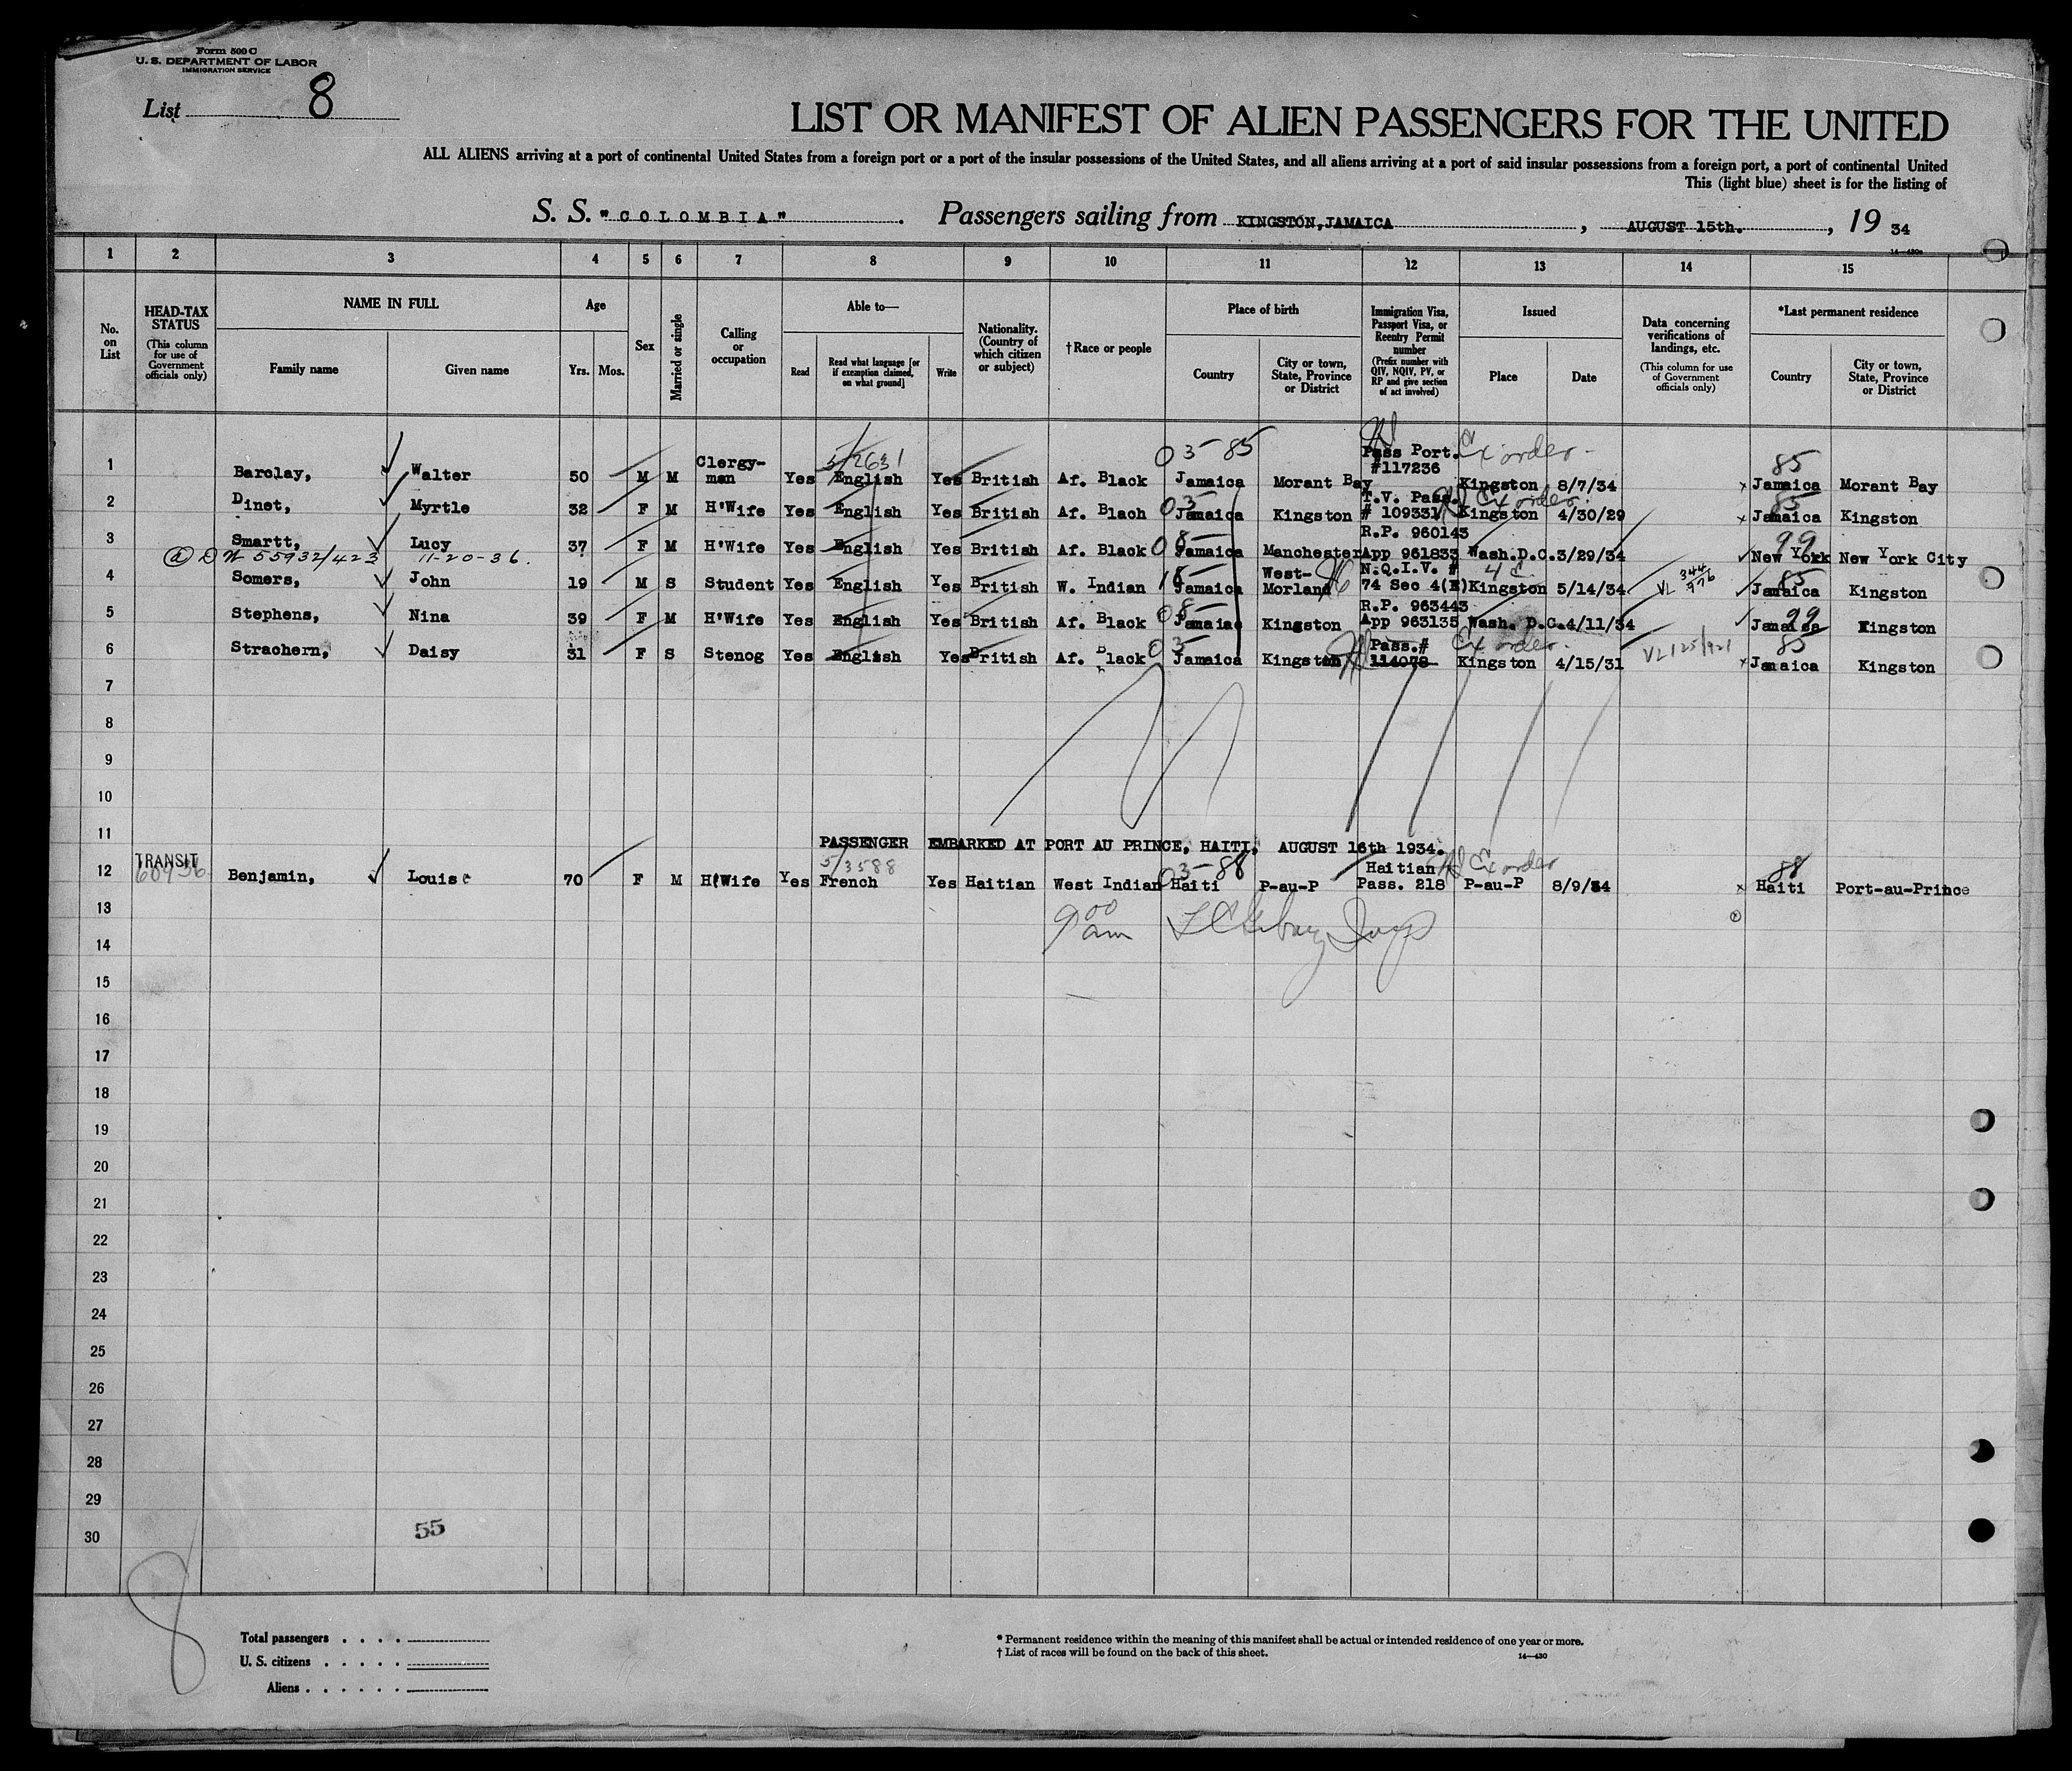 Form 500 C
U. S. DEPARTMENT OF LABOR
IMMIGRATION SERVICE
List 8
LIST OR MANIFEST OF ALIEN PASSENGERS FOR THE UNITED
ALL ALIENS arriving at a port of continental United States from a foreign port or a port of the insular possessions of the United States, and all aliens arriving at a port of said insular possessions from a foreign port, a port of continental United
This (light blue) sheet is for the listing of
S. S. "COLOMBIA" . Passengers sailing from KINGSTON, JAMAICA , AUGUST 15th. , 19 34
14—430a
1 2 3 4 5 6 7 8 9 10 11 12 13 14 15
No. on List
HEAD-TAX STATUS (This column for use of Government officials only)
NAME IN FULL
Family name Given name
Age
Yrs. Mos.
Sex
Married or single
Calling or occupation
Able to—
Read Read what language [or if exemption claimed, on what ground] Write
Nationality. (Country of which citizen or subject)
†Race or people
Place of birth
Country City or town, State, Province or District
Immigration Visa, Passport Visa, or Reentry Permit number (Prefix number with QIV, NQIV, PV, or RP and give section of act involved)
Issued
Place Date
Data concerning verifications of landings, etc. (This column for use of Government officials only)
*Last permanent residence
Country City or town, State, Province or District
1 Barclay, Walter 50 M M Clergy-man Yes 5/2631 English Yes British Af. Black 03-85 Jamaica Morant Bay Pass Port. #117236 Ex order Kingston 8/7/34 85 Jamaica Morant Bay
2 Dinet, Myrtle 32 F M H'Wife Yes English Yes British Af. Blach 03 Jamaica Kingston T.V. Pass. # 109331 Ex order Kingston 4/30/29 85 Jamaica Kingston
3 Smartt, Lucy 37 F M H'Wife Yes English Yes British Af. Black 08 Jamaica Manchester R.P. 960143 App 961833 Wash.D.C. 3/29/34 99 New York New York City
55932/423 11-20-36.
4 Somers, John 19 M S Student Yes English Yes British W. Indian 18 Jamaica West-Morland N.Q.I.V. # 74 Sec 4(E) 4 E Kingston 5/14/34 VL 344/976 85 Jamaica Kingston
5 Stephens, Nina 39 F M H'Wife Yes English Yes British Af. Black 08 Jamaiac Kingston R.P. 963443 App 963135 Wash. D.C. 4/11/34 99 Jamaica Kingston
6 Strachern, Daisy 31 F S Stenog Yes English Yes British Af. Black 03 Jamaica Kingston Pass.# 114078 Ex order Kingston 4/15/31 VL 125/921 85 Jamaica Kingston
7
8
9
10
11 PASSENGER EMBARKED AT PORT AU PRINCE, HAITI, AUGUST 16th 1934.
12 TRANSIT Benjamin, Louise 70 F M H'Wife Yes 5/3588 French Yes Haitian West Indian 03-88 Haiti P-au-P Haitian Pass. 218 Ex order P-au-P 8/9/34 88 Haiti Port-au-Prince
13
9 00 am
14
15
16
17
18
19
20
21
22
23
24
25
26
27
28
29
30
55
8
Total passengers . . . .
U. S. citizens . . . . .
Aliens . . . . . .
* Permanent residence within the meaning of this manifest shall be actual or intended residence of one year or more.
† List of races will be found on the back of this sheet.
14—430